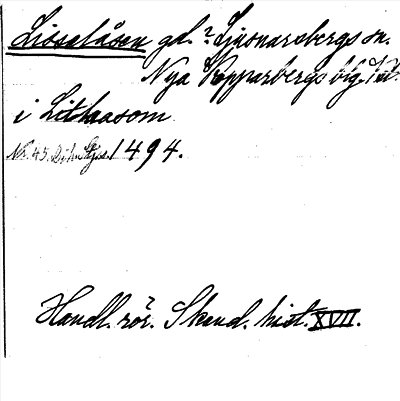 Lisselåsen gd.? Ljusnarsbergs sn.
Nya Kopparbergs blg. Vstm.
i Lithaasom
Nr. 45. 1494.
Handl. rör? Skand. hist. XVII.